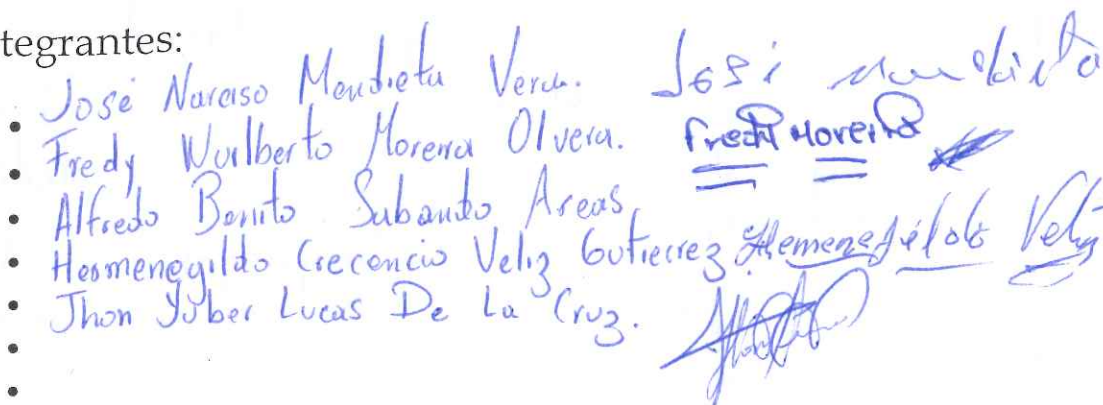 tegrantes:
José Narciso Mendieta Vera. José Mendieta
Fredy Wuilberto Morena Olvera. Fredy Moreira
Alfredo Benito Subando Areas
Hermenegildo Crecencio Veliz Gutierrez Hemenegildo Veliz
Jhon Yuber Lucas De La Cruz.